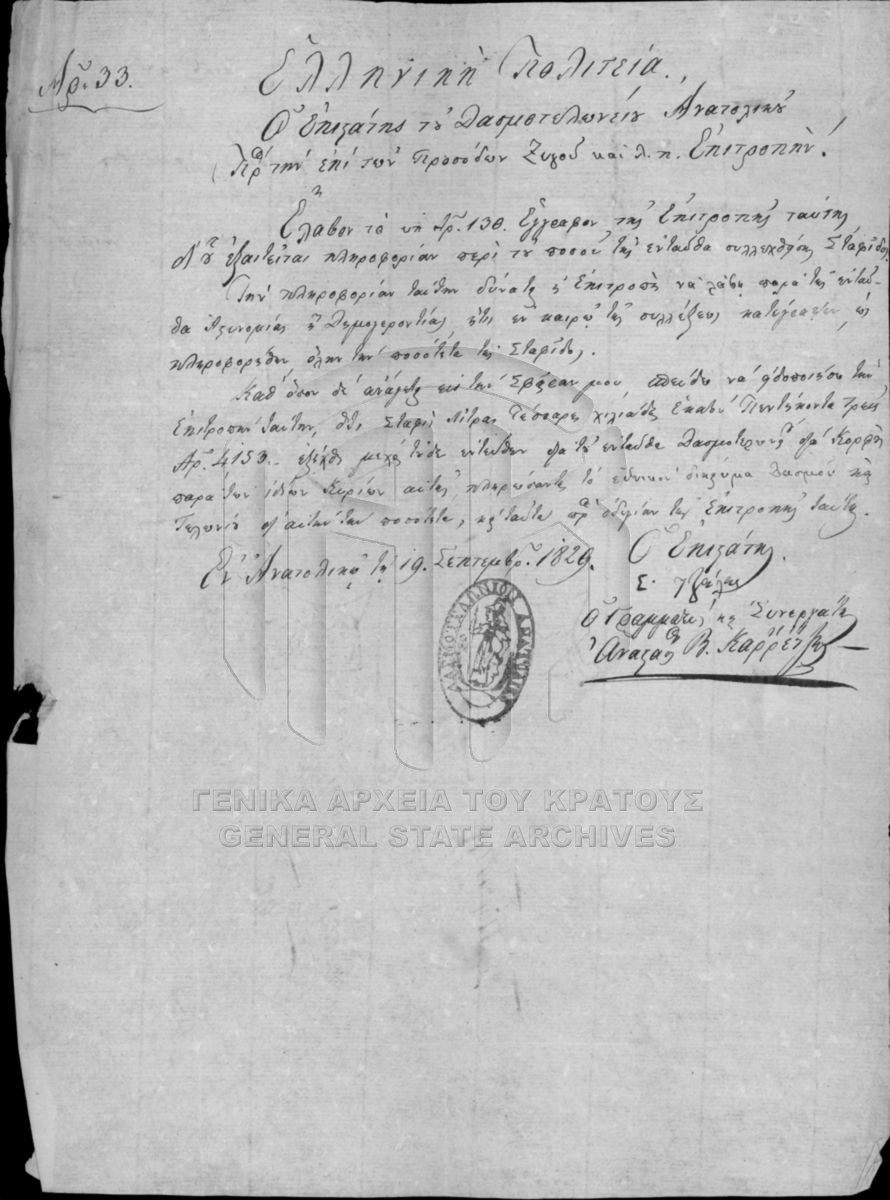 Αρ. 33.
Ἑλληνικὴ Πολιτεία.
Ὁ Ἐπιστάτης τοῦ Δασμοτελωνείου Ἀνατολικοῦ
Πρὸς τὴν ἐπὶ τῶν Προσόδων Ζυγοῦ καὶ λ. π. Ἐπιτροπήν!
Ἔλαβον τὸ ὑπ Ἀρ. 130. Ἔγγραφον τῆς Ἐπιτροπῆς ταύτης
δι' οὗ ἐξαιτεῖται πληροφορίαν περὶ τοῦ ποσοῦ τῆς ἐνταῦθα συλλεχθείσης Σταφίδος
Τὴν πληροφορίαν ταύτην δύναται ἡ Ἐπιτροπὴ νὰ λάβῃ παρὰ τῆς ἐνταῦ-
θα Ἀστυνομίας ἢ Δημογεροντίας, ἥτις ἐν καιρῷ τῆς συλλέξεως κατέγραψεν, ὡς
πληροφορεῖται ὅλην τὴν ποσότητα τῆς Σταφίδος.
Καθ' ὅσον δὲ ἀνάγεται εἰς τὴν Σφαῖραν μου νὰ εἰδοποιήσω τὴν
Ἐπιτροπὴν ταύτην, ὅτι Σταφὶς Λίτρας Τέσσαρες χιλιάδες Ἑκατὸν Πεντήκοντα τρεῖς
Ἀρ. 4153. ἐξήχθη μέχρι τοῦδε ἐντεῦθεν διὰ τοῦ ἐνταῦθα Δασμοτελωνείου διὰ Κορφοὺς
παρὰ τῶν ἰδίων Κυρίων αὐτῆς, πληρώσαντες τὸ ἐθνικὸν δικαίωμα Δασμοῦ καὶ
Τελωνίου δι' αὐτὴν τὴν ποσότητα, καὶ ταῦτα πρὸς ὁδηγίαν τῆς Ἐπιτροπῆς ταύτης.
Ἐν Ἀνατολικῷ τῇ 19. Σεπτεμβρ. 1829.
Ὁ Ἐπιστάτης
Σ.
Ὁ Γραμματεὺς καὶ Συνεργάτης
Ἀναστάσιος Β.
ΔΑΣΜΟΤΕΛΩΝΙΟΝ ΑΝΑΤΟΛΙΚΟΥ
ΓΕΝΙΚΑ ΑΡΧΕΙΑ ΤΟΥ ΚΡΑΤΟΥΣ
GENERAL STATE ARCHIVES